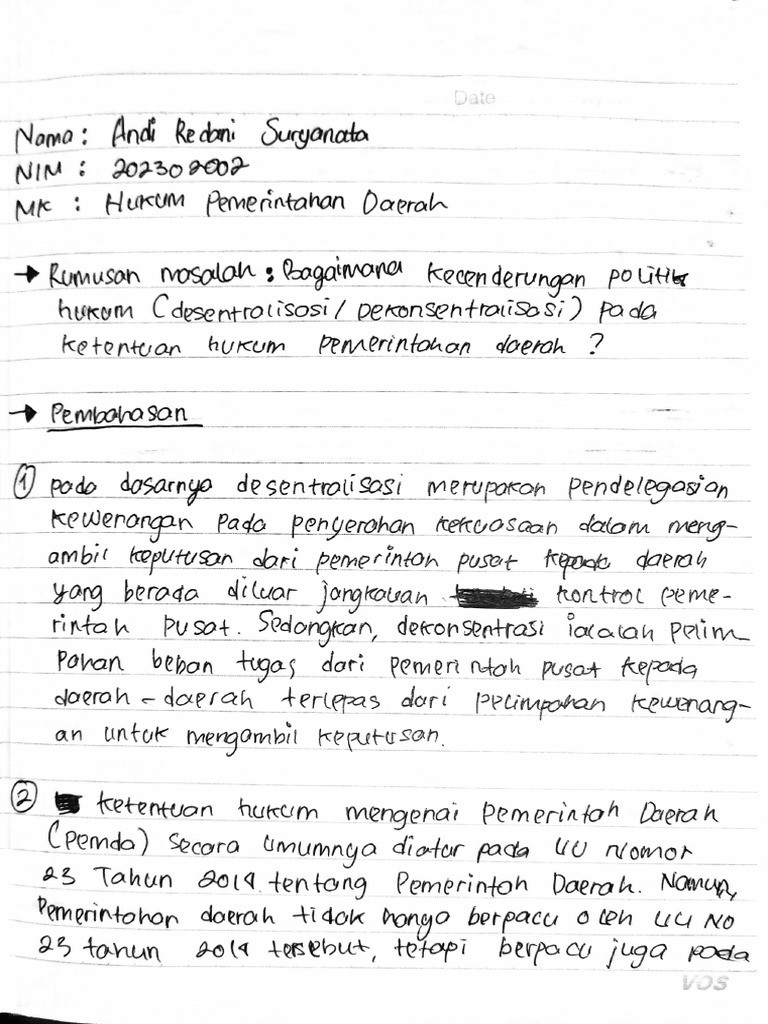 Date
Nama: Andi Redani Suryanata
NIM : 202302002
MK : Hukum Pemerintahan Daerah
→ Rumusan masalah : Bagaimana kecenderungan politik
hukum (desentralisasi / Dekonsentralisasi) pada
ketentuan hukum pemerintahan daerah ?
→ Pembahasan
① pada dasarnya desentralisasi merupakan pendelegasian
kewenangan pada penyerahan kekuasaan dalam meng-
ambil keputusan dari pemerintah pusat kepada daerah
yang berada diluar jangkauan kontrol peme-
rintah pusat. Sedangkan, dekonsentrasi ialalah pelim
pahan beban tugas dari pemerintah pusat kepada
daerah - daerah terlepas dari pelimpahan kewenang-
an untuk mengambil keputusan.
② ketentuan hukum mengenai Pemerintah Daerah
(Pemda) secara umumnya diatur pada UU Nomor
23 Tahun 2014 tentang Pemerintah Daerah. Namun,
Pemerintahan daerah tidak hanya berpacu oleh UU No
23 tahun 2014 tersebut, tetapi berpacu juga pada
VOS